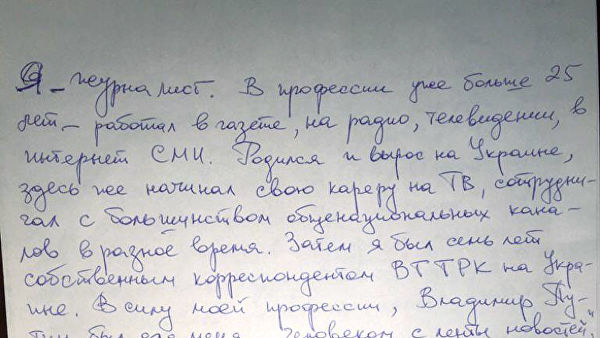 Я – журналист. В профессии уже больше 25
лет – работал в газете, на радио, телевидении, в
интернет СМИ. Родился и вырос на Украине,
здесь же начинал свою кареру на ТВ, сотрудни-
чал с большинством общенациональных кана-
лов в разное время. Затем я был семь лет
собственным корреспондентом ВГТРК на Укра-
ине. В силу моей профессии, Владимир Пу-
тин был для меня "человеком с ленты новостей,